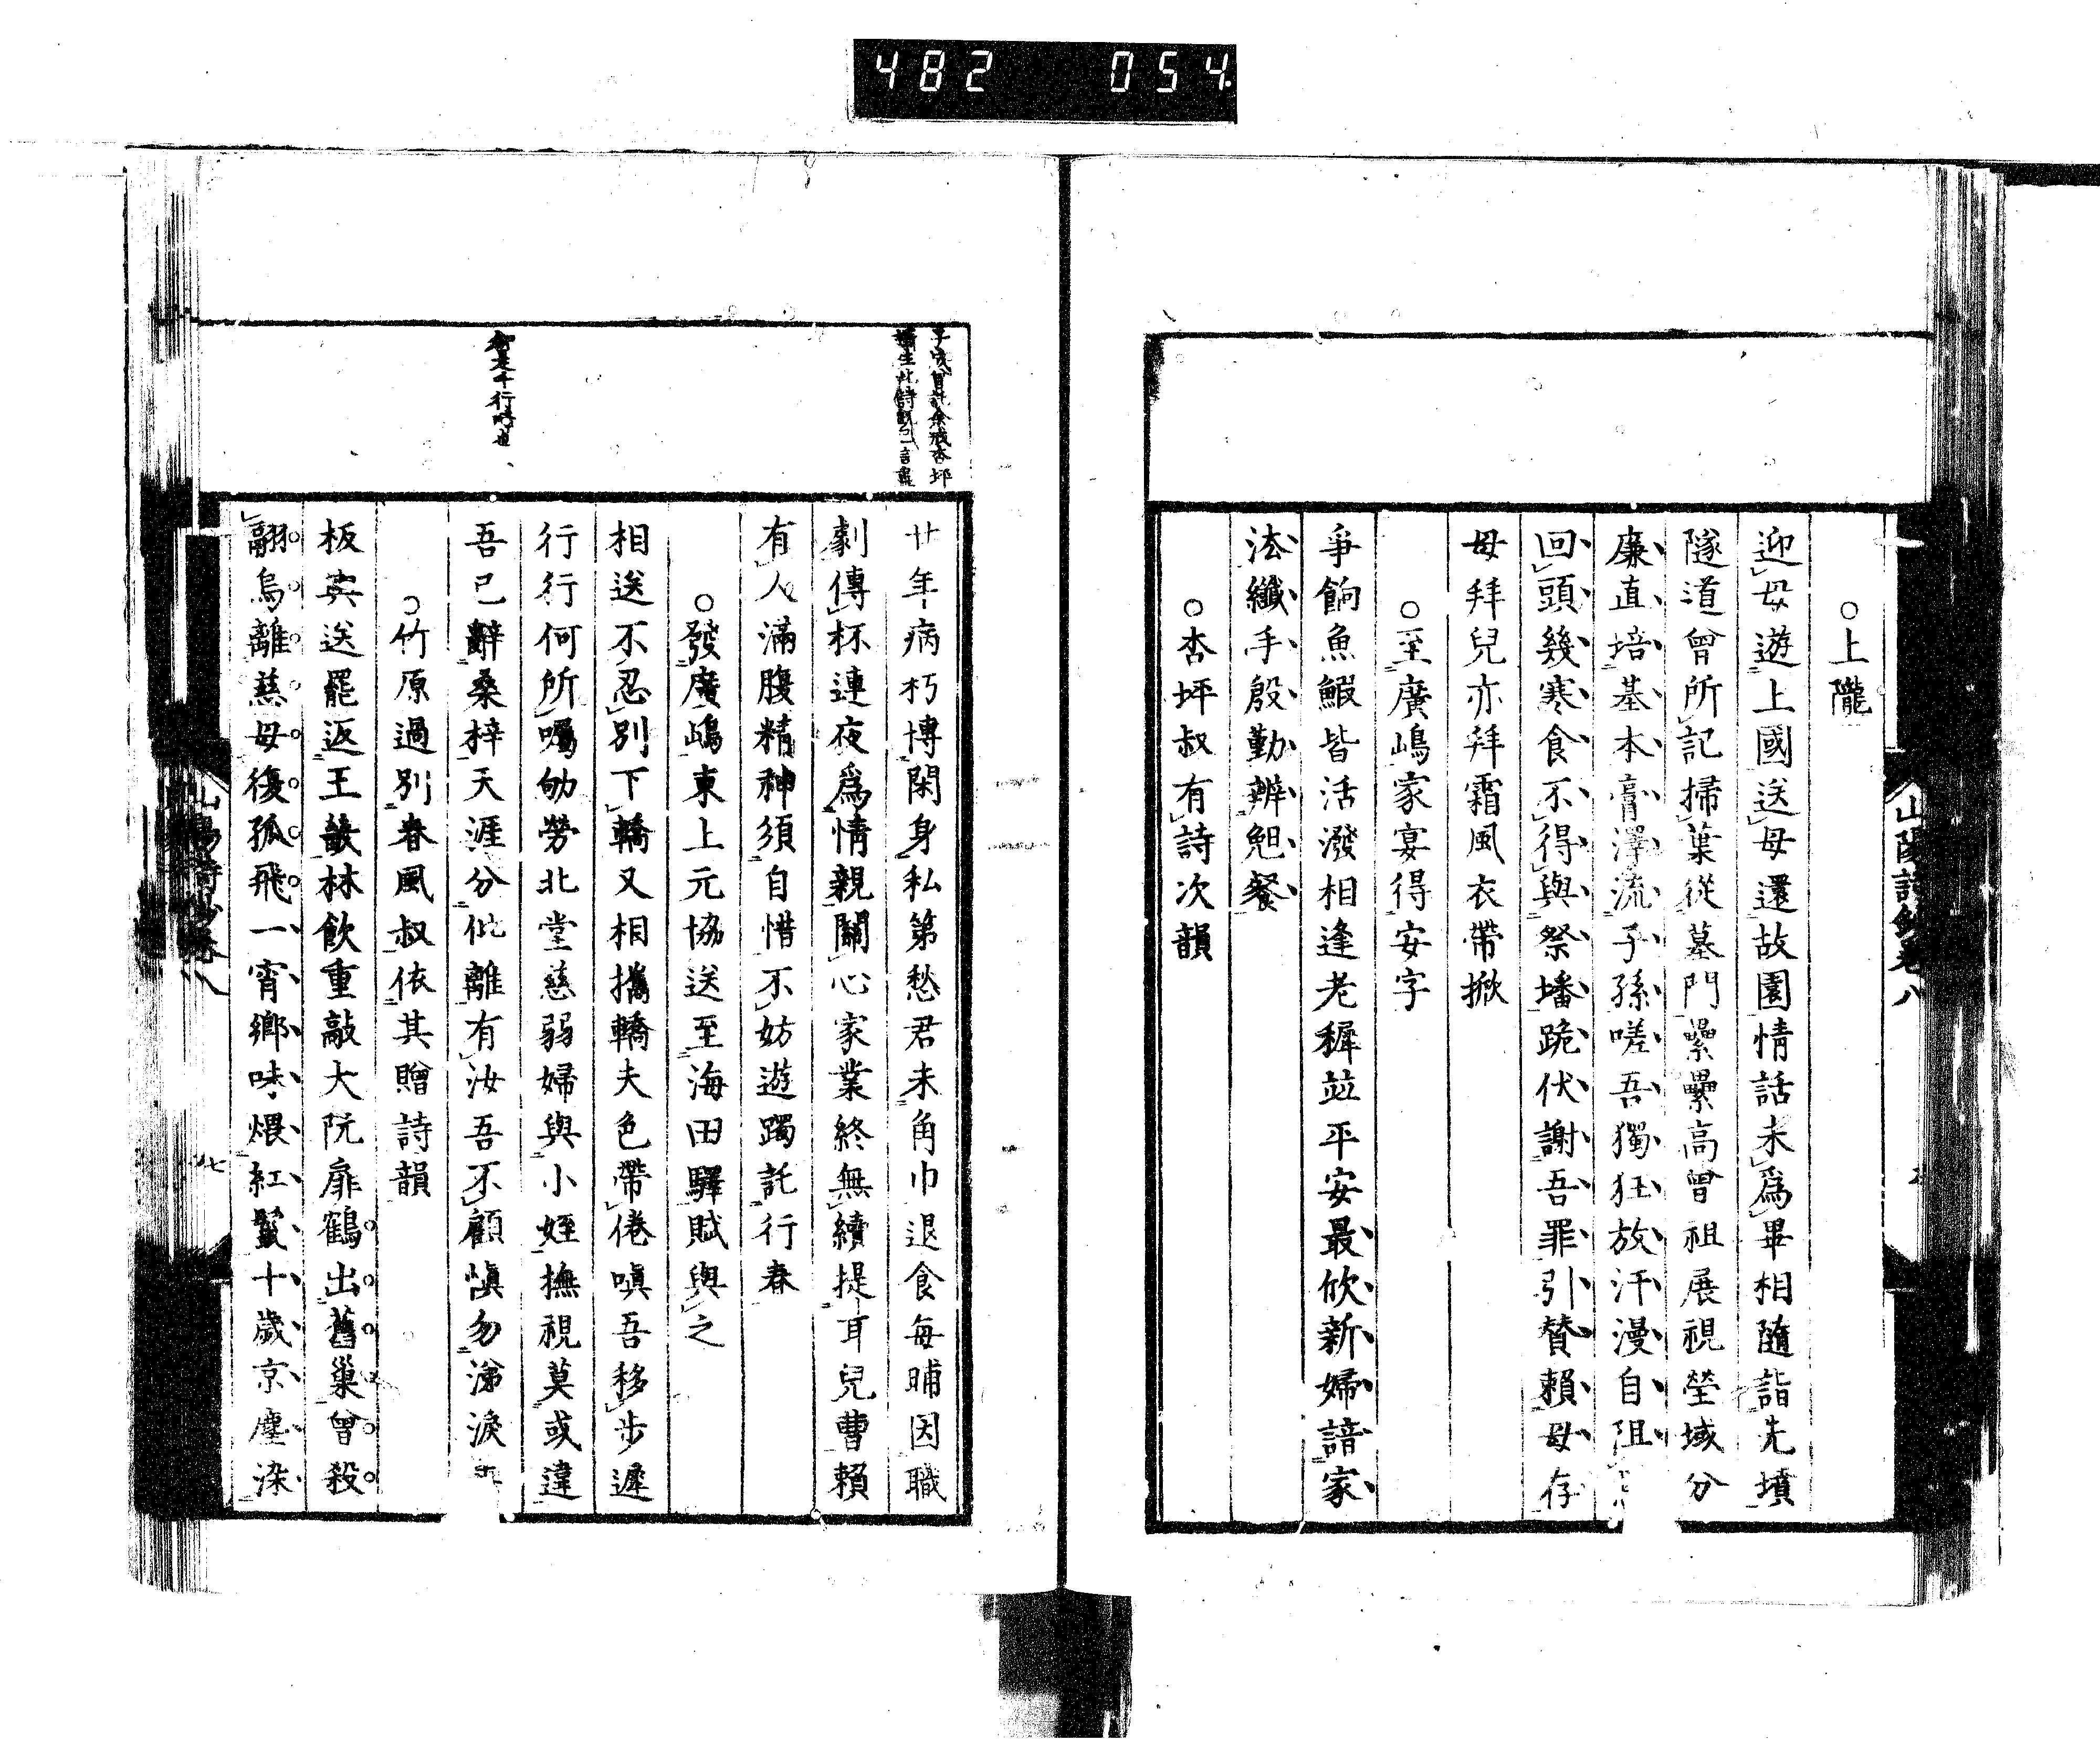 482 054
○上隴
迎母遊上國送母還故園情話未爲畢相隨詣先墳
隧道曾所記掃葉從墓門纍纍高曾祖展視塋域分
廉直培基本膏澤流子孫嗟吾獨狂放汗漫自阻
回頭幾寒食不得與祭墦跪伏謝吾罪引賛賴母存
母拜兒亦拜霜風衣帶掀
○至廣嶋家宴得安字
爭餉魚鰕皆活潑相逢老穉竝平安最欣新婦諳家
法纖手殷勤辨䰟餐
○杏坪叔有詩次韻
山陽詩鈔卷八
廿年病朽博閑身私第愁君未角巾退食每晡因職
劇傳杯連夜爲情親關心家業終無續提耳兒曹賴
有人滿腹精神須自惜不妨遊躅託行春
○發廣嶋東上元協送至海田驛賦與之
相送不忍別下轎又相攜轎夫色帶倦嗔吾移步遲
行行何所囑劬勞北堂慈弱婦與小姪撫視莫或違
吾已辭桑梓天涯分仳離有汝吾不顧愼勿涕淚
○竹原過別春風叔依其贈詩韻
板輿送罷返王畿林飮重敲大阮扉鶴出舊巢曾殺
翮烏離慈母復孤飛一宵鄕味煨紅鬣十歲京塵染
山陽詩鈔卷八
七